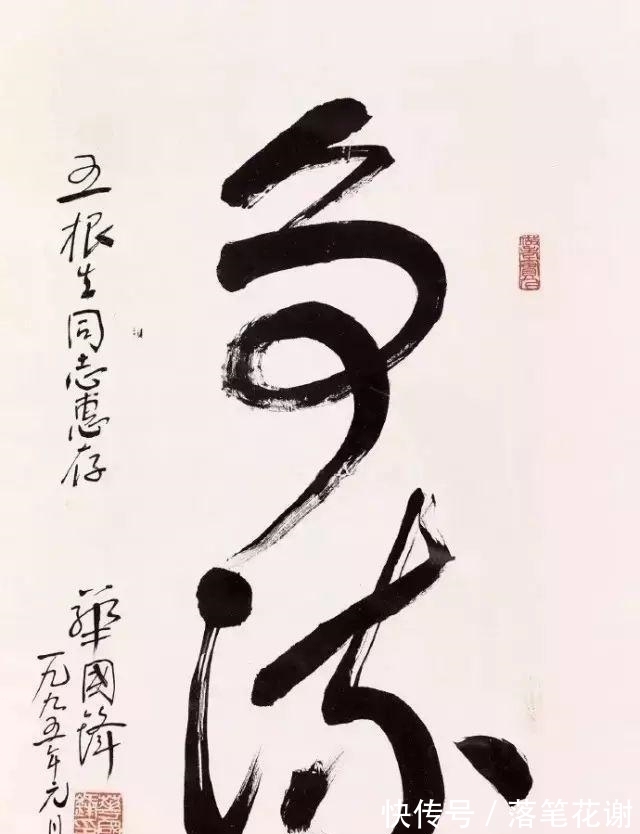 争流
王根生同志惠存
華國鋒
一九九五年元月
快传号 / 落笔花谢